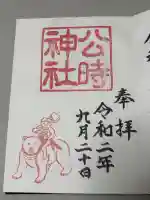 奉拝
令和二年
九月二十日
公時
神社